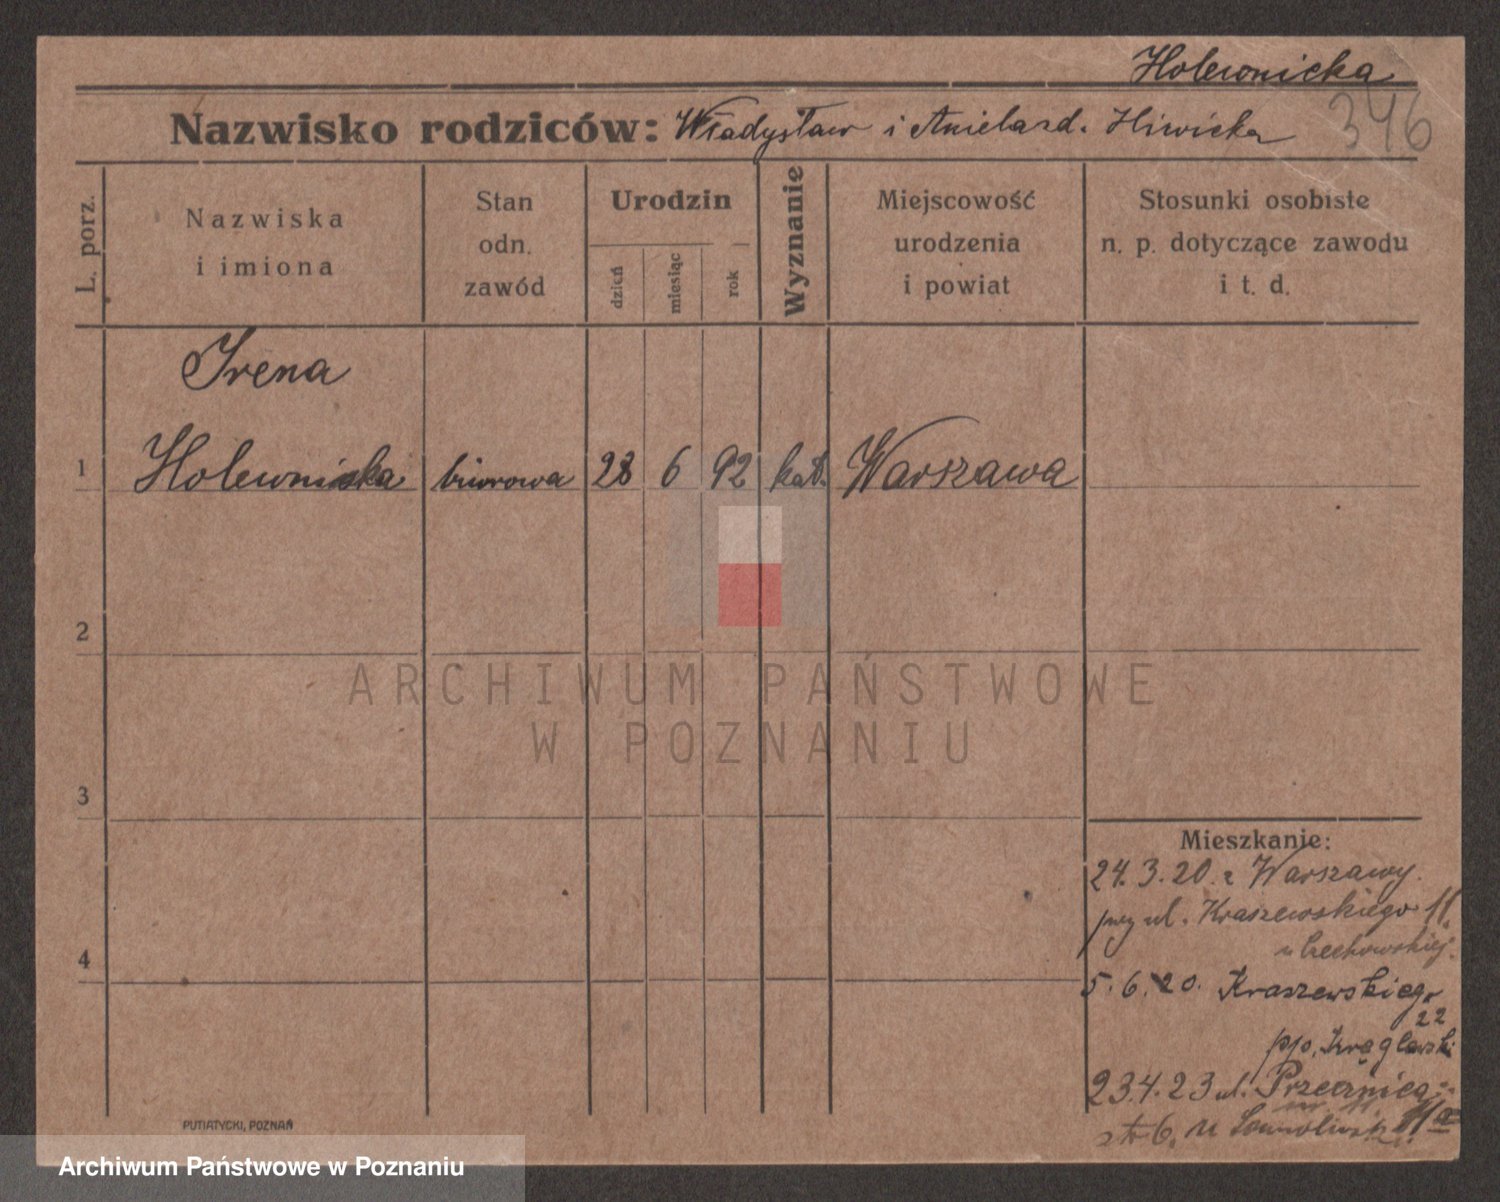 Holewnicka
346
Nazwisko rodziców: Władysław i Aniela z d. Hiwicka
L. porz.
Nazwiska
i imiona
Stan
odn.
zawód
Urodzin
dzień
miesiąc
rok
Wyznanie
Miejscowość
urodzenia
i powiat
Stosunki osobiste
n. p. dotyczące zawodu
i t. d.
Irena
1 Holewnicka biurowa 28 6 92 kat. Warszawa
2
3
4
Mieszkanie:
24.3.20. z Warszawy.
przy ul. Kraszewskiego 11.
u Czechowskiej.
5.6.20. Kraszewskiego
22
p/o,
23.4.23 ul.
6, u 11a
PUTIATYCKI, POZNAŃ
ARCHIWUM PAŃSTWOWE
W POZNANIU
Archiwum Państwowe w Poznaniu